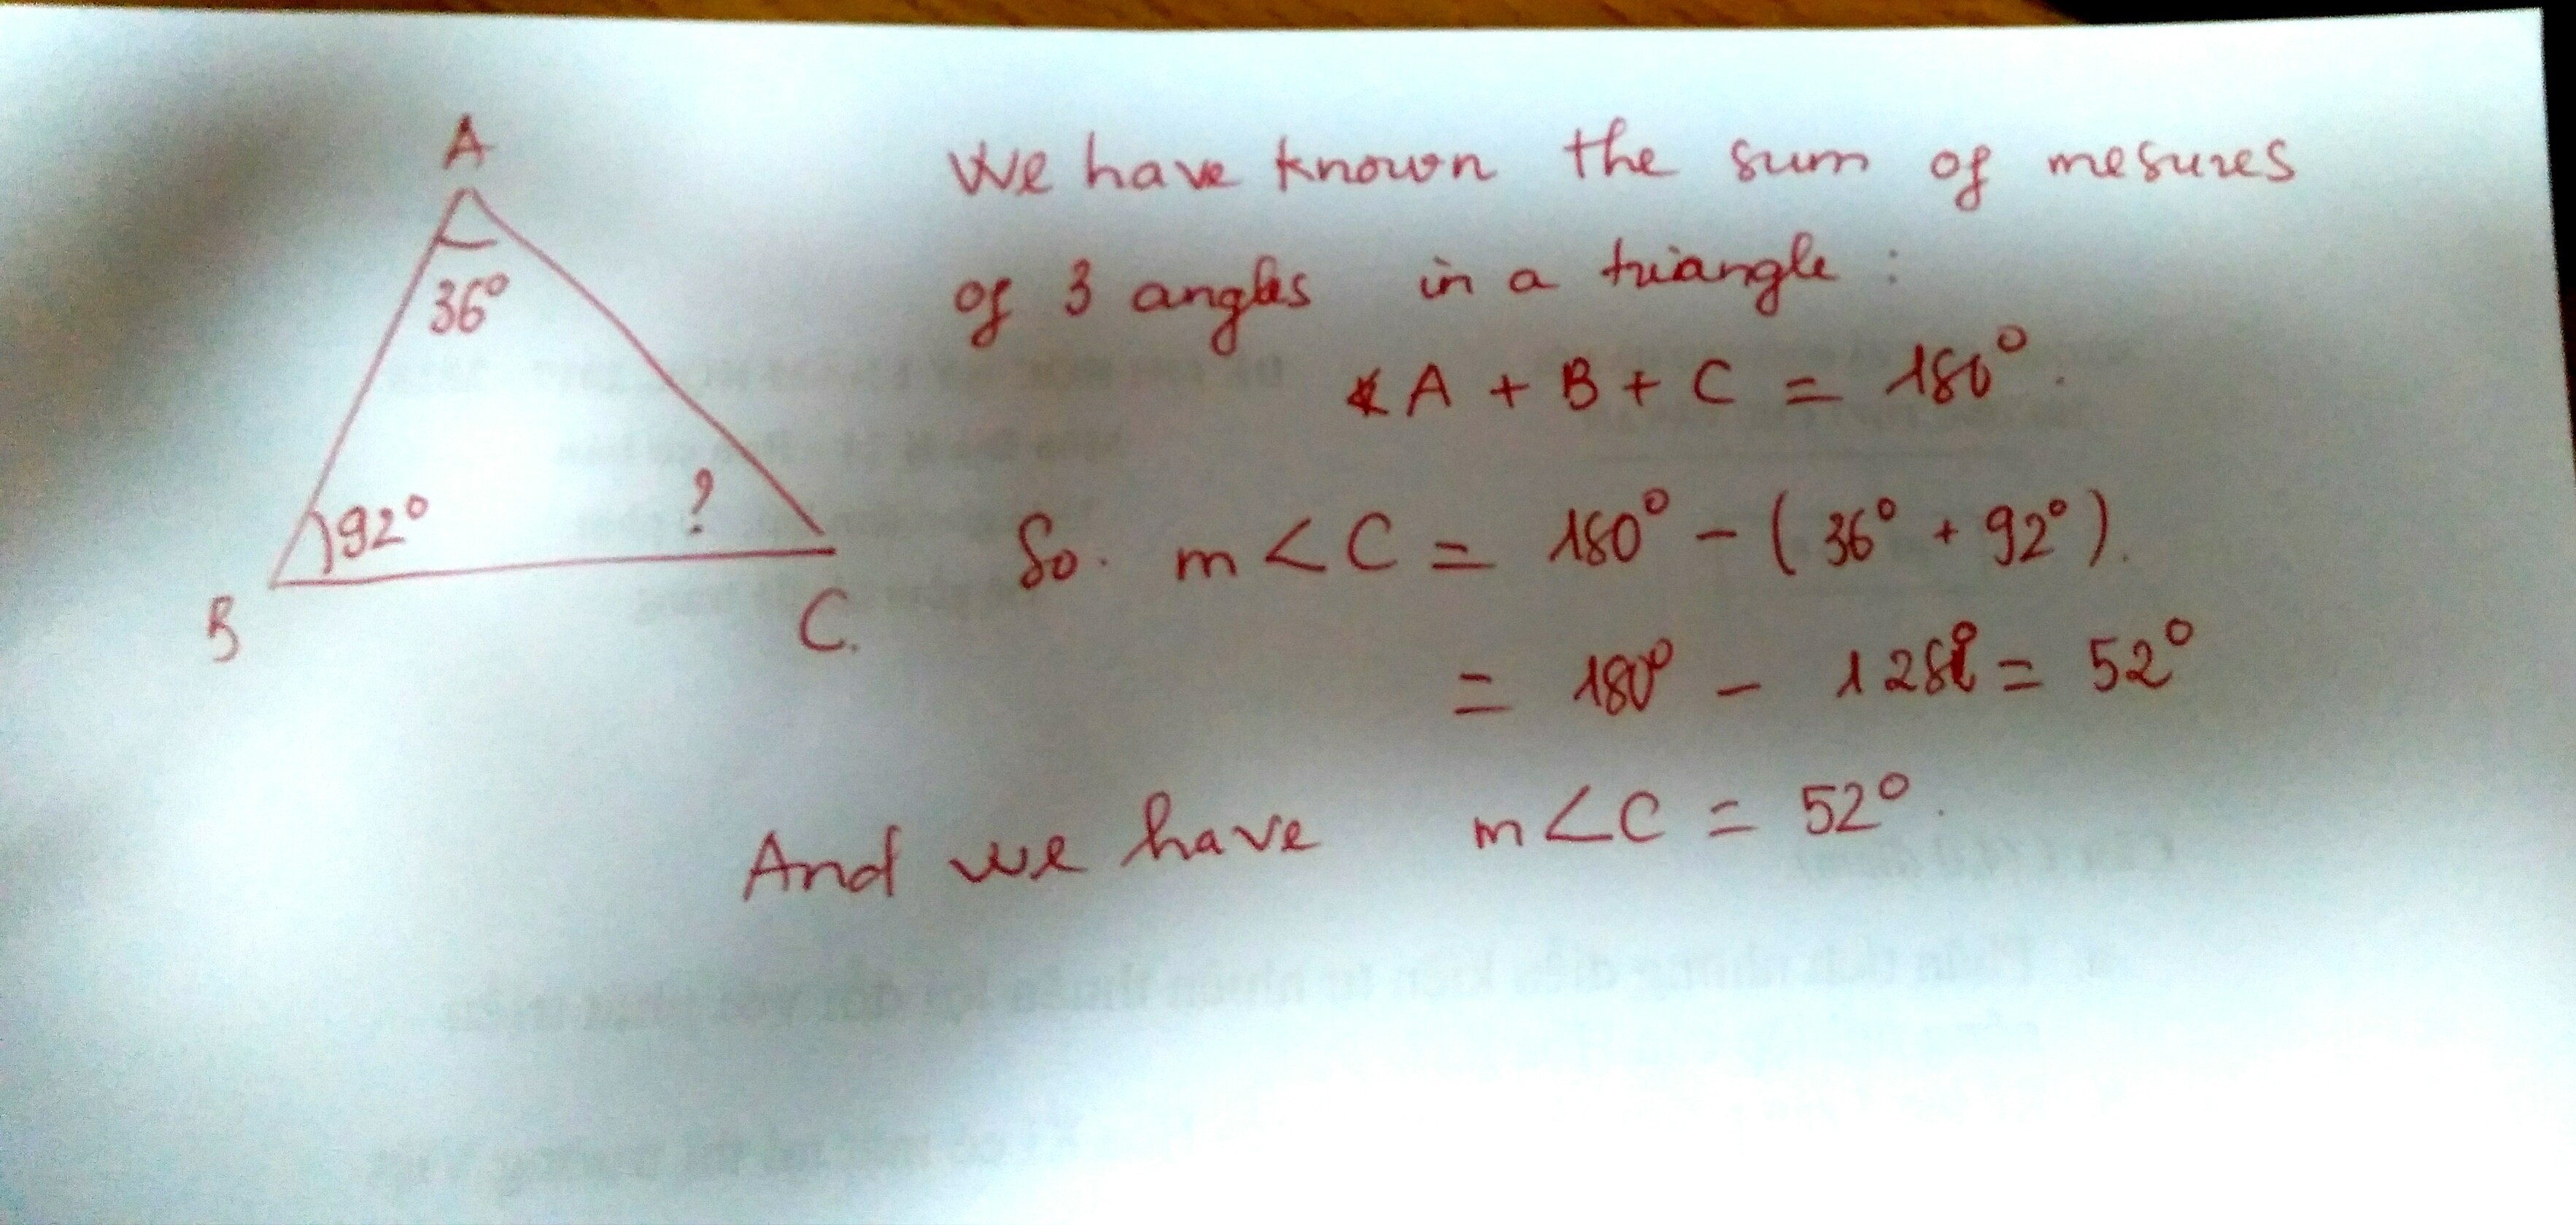 A
36°
92°
?
B
C.
We have known the sum of mesures
of 3 angles in a triangle :
∢A + B + C = 180°.
So. m∠C = 180° - (36° + 92°).
= 180° - 128° = 52°
And we have m∠C = 52°.